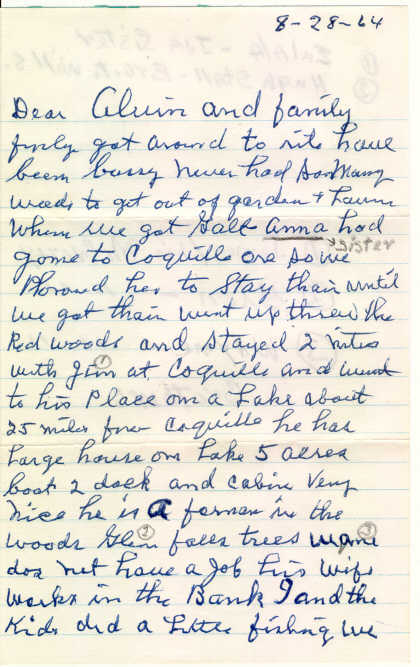 8-28-64
Dear Alvin and family
finly got around to rite have
been bussy never had so many
weeds to get out of garden + lawn
when we got Galt Anna had
sister
gone to Coquille ore so we
Phoned her to stay thair until
we got thair went up threw the
Red woods and stayed 2 nites
with Jim at Coquille and went
①
to his Place on a Lake about
25 miles from Coquille he has
Large house on Lake 5 acres
boat 2 dock and cabin Very
Nice he is a forman in the
woods Glen falls trees wayne
② ③
dos not have a Job his wife
works in the Bank I and the
Kids did a little fishing we